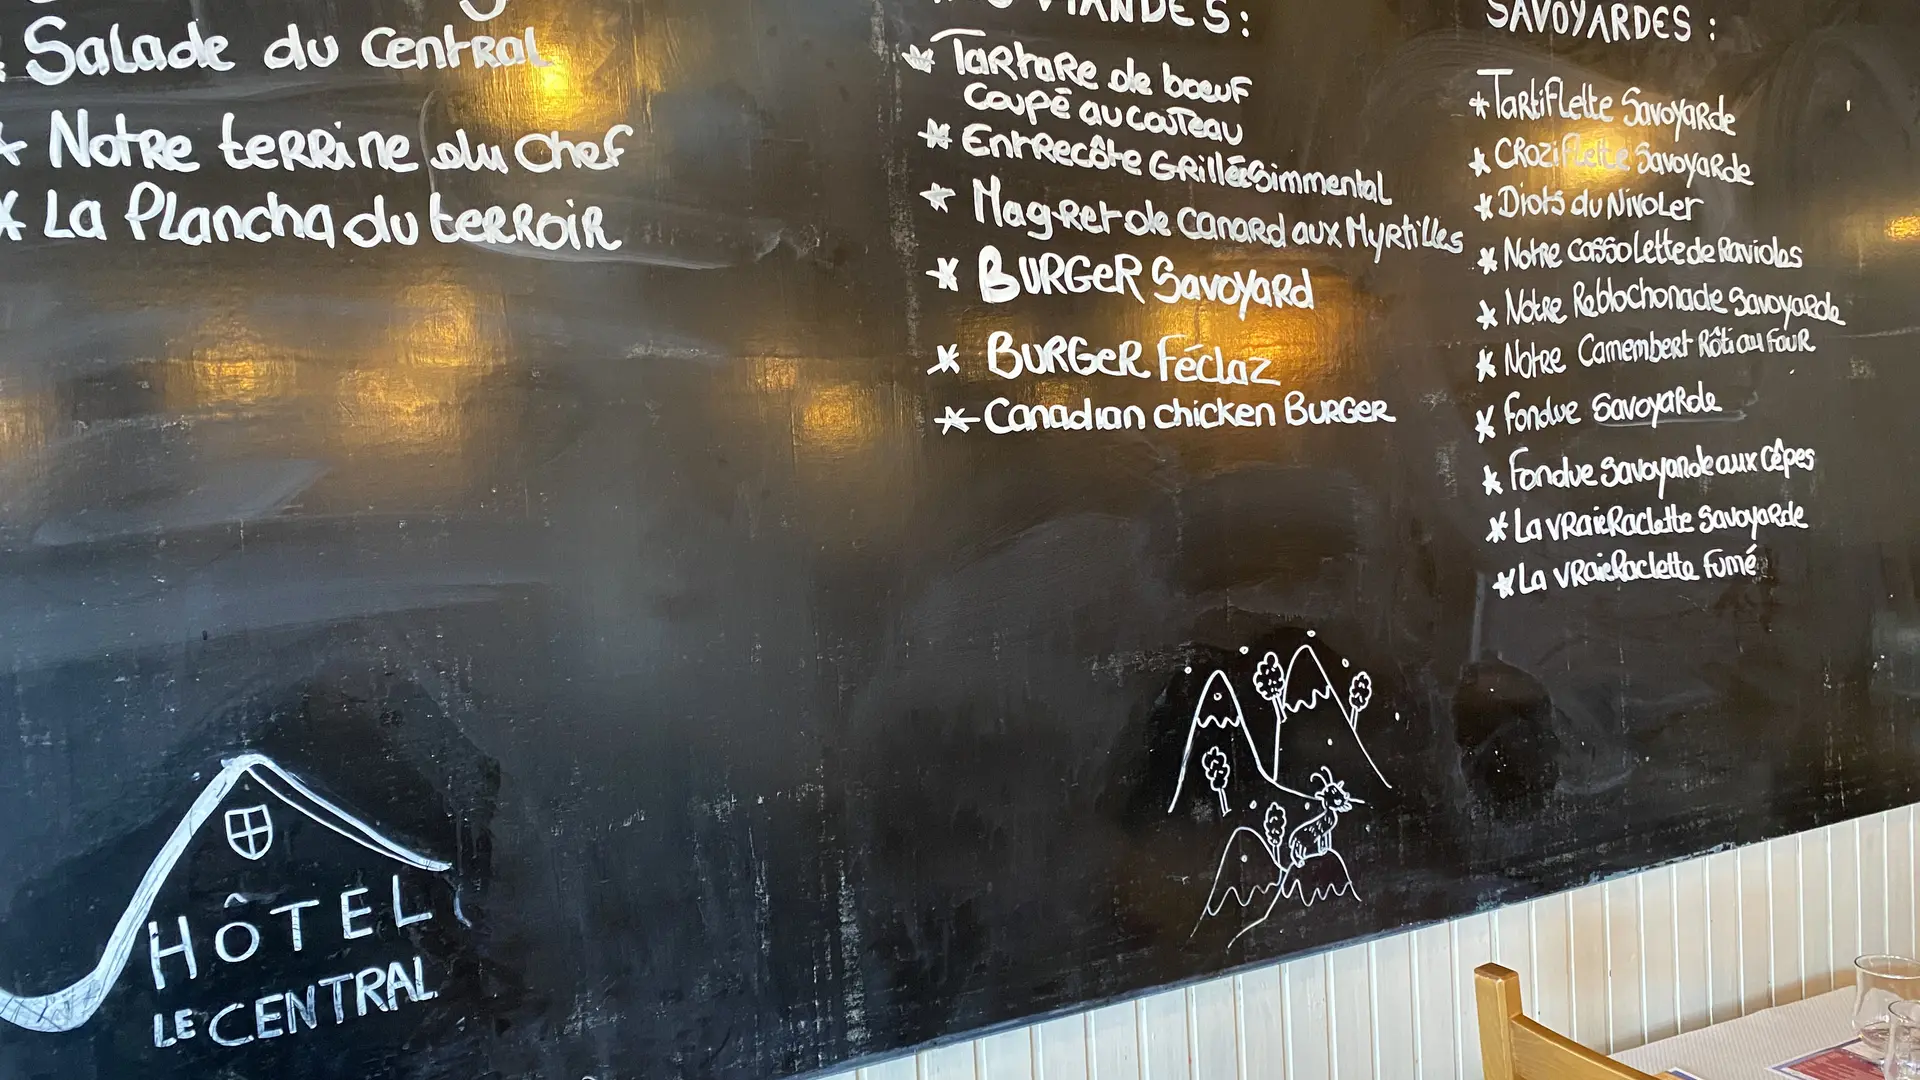 Salade du Central
* Notre terrine du Chef
* La Plancha du terroir
VIANDES :
* Tartare de boeuf
coupé au couteau
* Entrecôte Grillée Simmental
* Magret de canard aux Myrtilles
* BURGER Savoyard
* BURGER Féclaz
* Canadian chicken BURGER
SAVOYARDES :
* Tartiflette Savoyarde
* CROZiflette Savoyarde
* Diots du Nivolet
* Notre cassolette de Ravioles
* Notre Reblochonade Savoyarde
* Notre Camembert Rôti au four
* Fondue Savoyarde
* Fondue Savoyarde aux Cêpes
* La vraie Raclette Savoyarde
* La vraie Raclette fumé
HÔTEL
LE CENTRAL